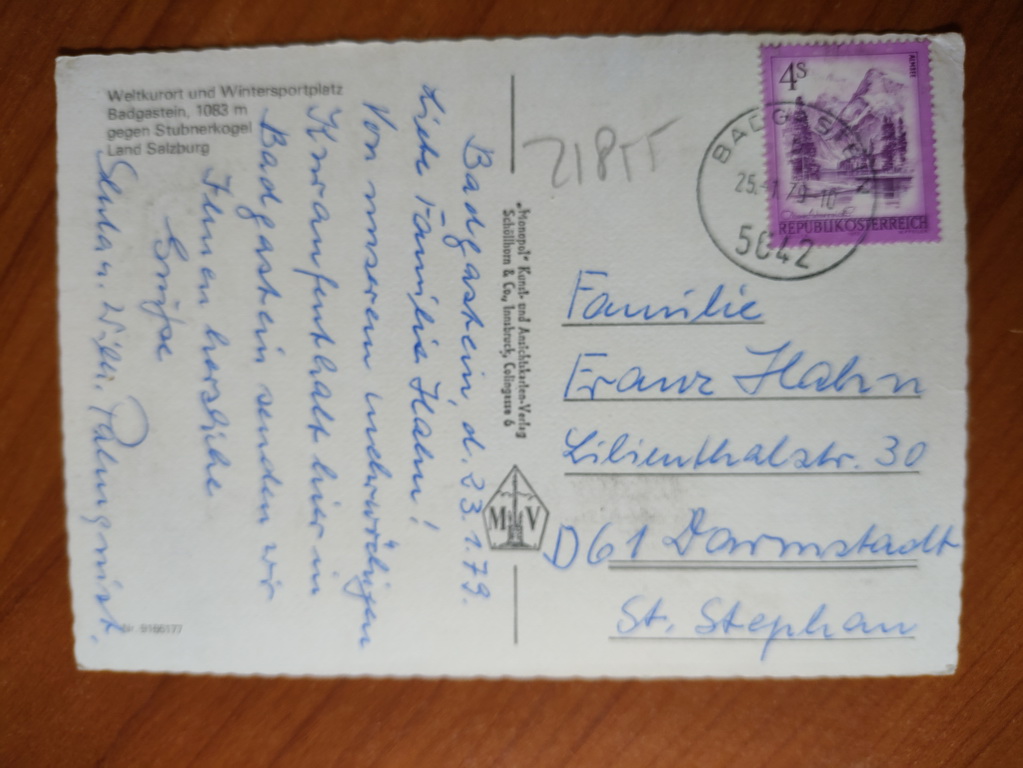 Weltkurort und Wintersportplatz
Badgastein, 1083 m
gegen Stubnerkogel
Land Salzburg
Badgastein, d. 23.1.79.
Liebe Familie Hahn!
Von unserem mehrwöchigen
Kuraufenthalt hier in
Badgastein senden wir
Ihnen herzliche
Grüße
9166177
„Monopol" Kunst- und Ansichtskarten-Verlag
Schöllhorn & Co., Innsbruck, Colingasse 6
M V
218
4S
REPUBLIK ÖSTERREICH
BADGASTEIN
5642
Familie
Franz Hahn
Lilienthalstr. 30
D61 Darmstadt
St. Stephan